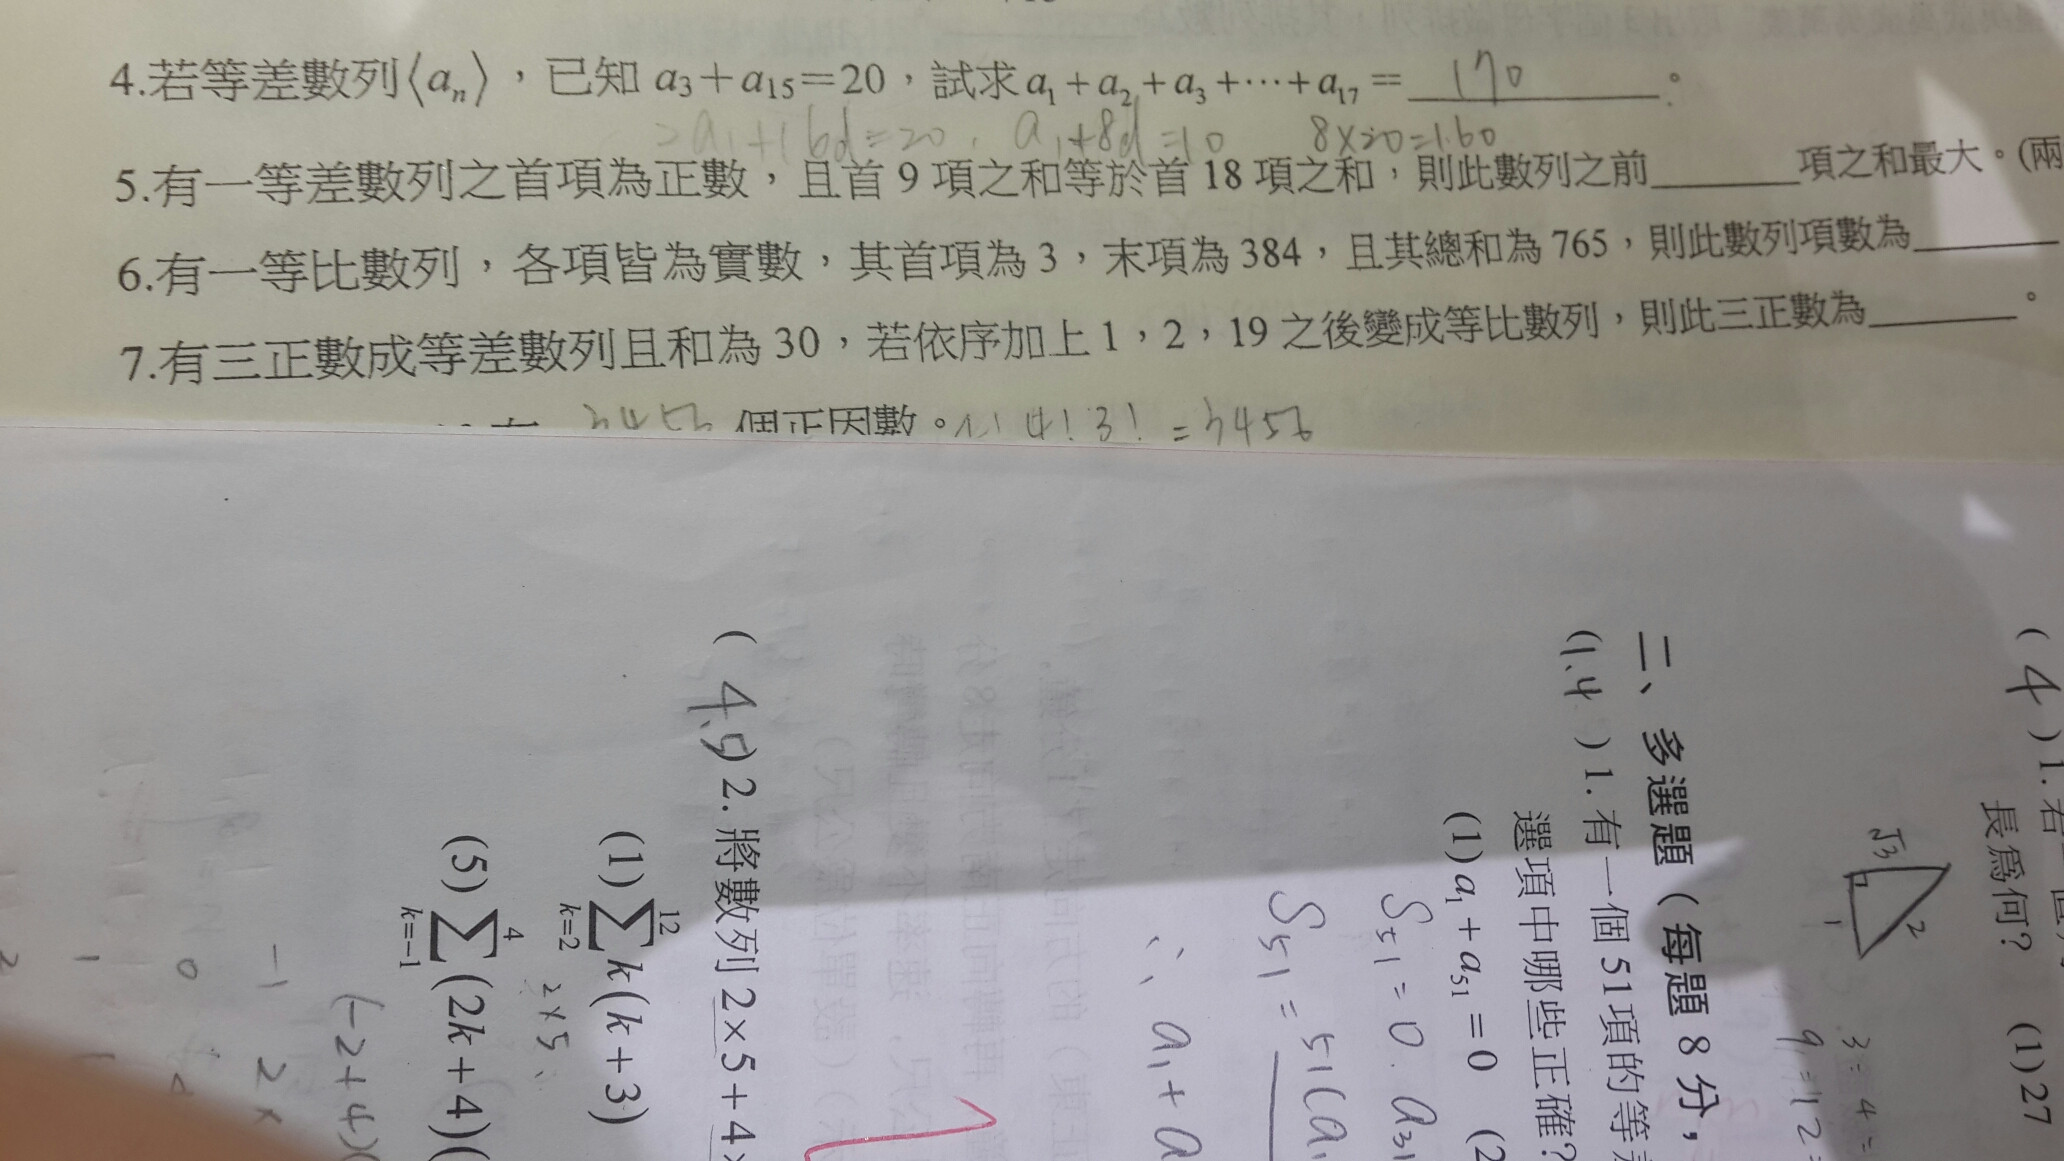 4.若等差數列⟨aₙ⟩，已知 a₃+a₁₅=20，試求 a₁+a₂+a₃+⋯+a₁₇= 170 。
2a₁+16d=20, a₁+8d=10 8×20=160
5.有一等差數列之首項為正數，且首 9 項之和等於首 18 項之和，則此數列之前______項之和最大。(兩
6.有一等比數列，各項皆為實數，其首項為 3，末項為 384，且其總和為 765，則此數列項數為______
7.有三正數成等差數列且和為 30，若依序加上 1，2，19 之後變成等比數列，則此三正數為______。
個正因數。4!3! =3456
( 4 )1.若
長為何?
(1)27
√3 2 1
二、多選題（每題 8 分，
(1.4 )1.有一個 51 項的等
選項中哪些正確?
(1)a₁+a₅₁=0 (2
S₅₁=0.
S₅₁= 51(a₁
∴ a₁+a
( 4.5) 2.將數列 2×5+4×
(1)∑ₖ₌₂¹² k(k+3)
2×5
(5)∑ₖ₌₋₁⁴ (2k+4)(
(-2+4)(
-1 2×
0
1
2